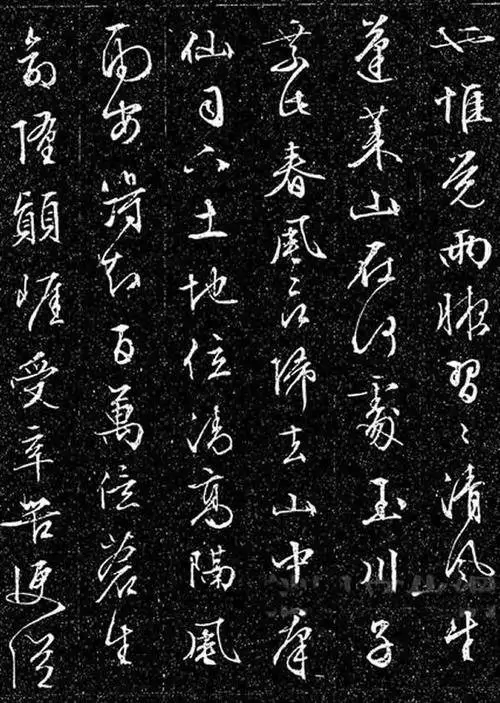 也惟覺兩腋習々清風生
蓬萊山在何處玉川子
乘此春風欲歸去山中群
仙司下土地位清高隔風
雨安得知百萬億蒼生
命墮顛崖受辛苦便從